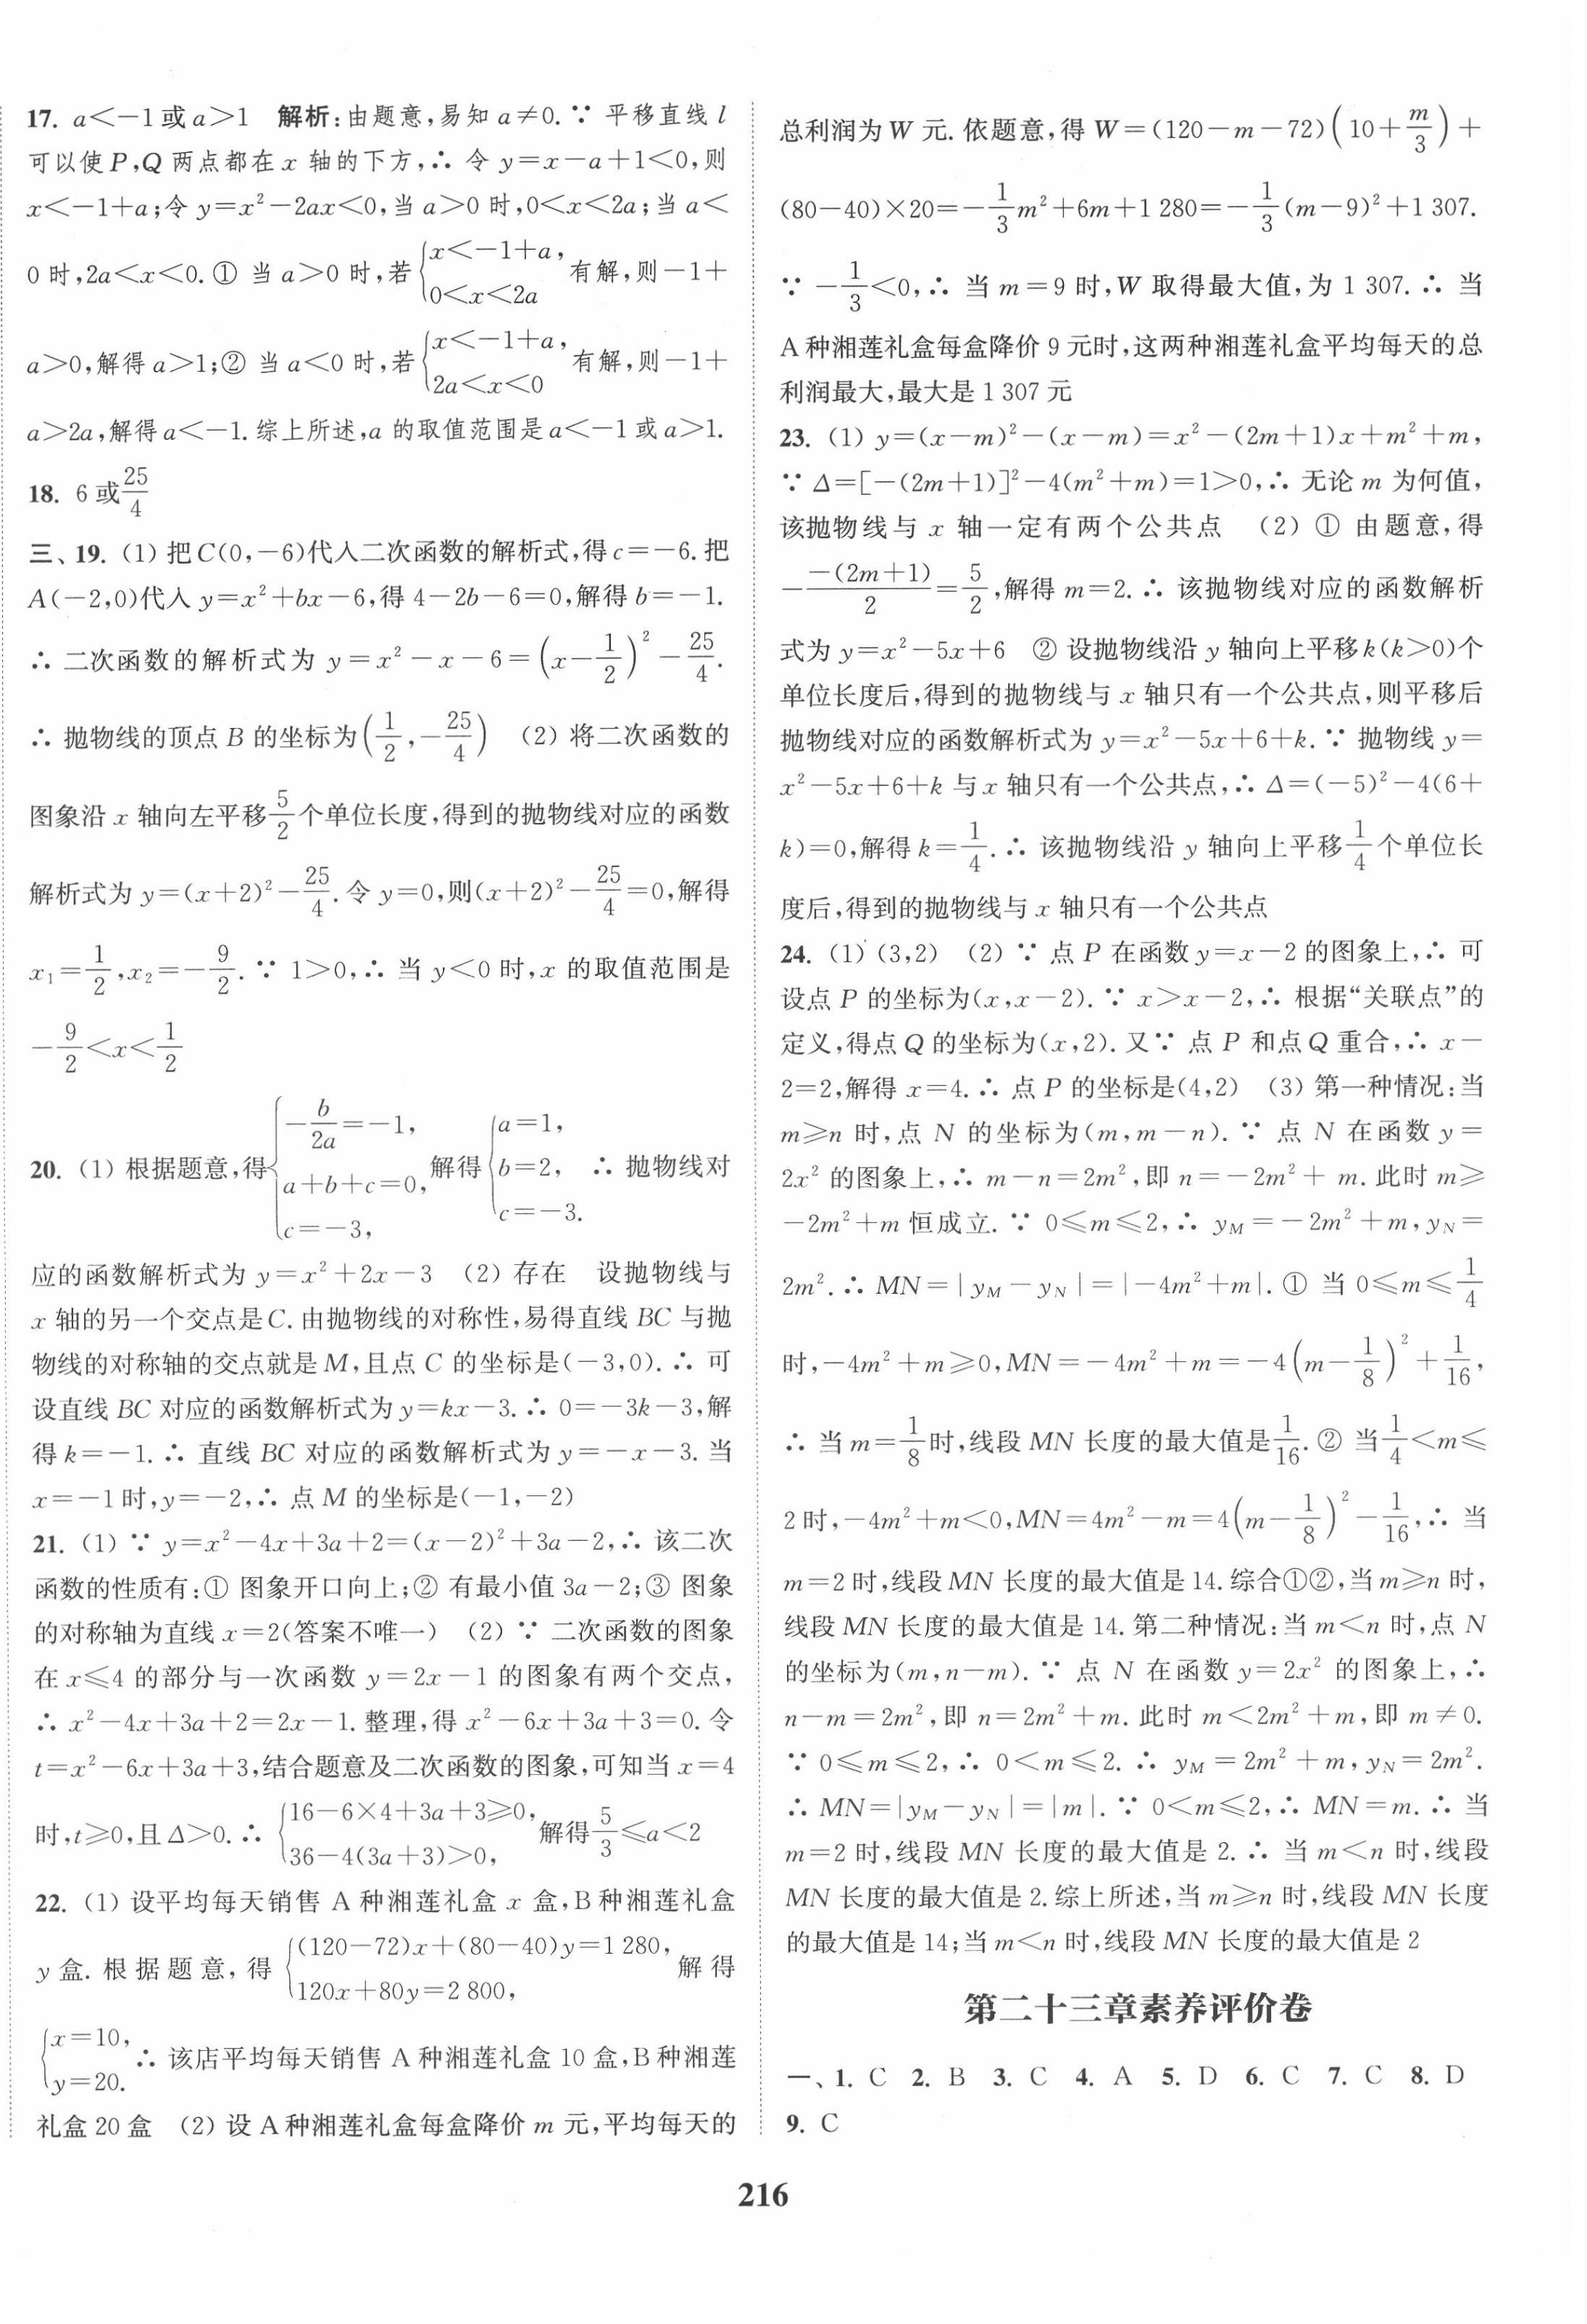 17. a<－1或a>1　解析：由题意,易知a≠0.∵ 平移直线l
可以使P,Q两点都在x轴的下方,∴ 令y=x－a＋1<0,则
x<－1＋a;令y=x²－2ax<0,当a>0时,0<x<2a;当a<
0时,2a<x<0.① 当a>0时,若{x<－1＋a, 0<x<2a 有解,则－1＋
a>0,解得a>1;② 当a<0时,若{x<－1＋a, 2a<x<0 有解,则－1＋
a>2a,解得a<－1.综上所述,a的取值范围是a<－1或a>1.
18. 6或25/4
三、19. (1) 把C(0,－6)代入二次函数的解析式,得c=－6.把
A(－2,0)代入y=x²＋bx－6,得4－2b－6=0,解得b=－1.
∴ 二次函数的解析式为y=x²－x－6=(x－1/2)²－25/4.
∴ 抛物线的顶点B的坐标为(1/2,－25/4)　(2) 将二次函数的
图象沿x轴向左平移5/2个单位长度,得到的抛物线对应的函数
解析式为y=(x＋2)²－25/4.令y=0,则(x＋2)²－25/4=0,解得
x₁=1/2,x₂=－9/2.∵ 1>0,∴ 当y<0时,x的取值范围是
－9/2<x<1/2
20. (1) 根据题意,得{－b/2a=－1, a＋b＋c=0, c=－3, 解得{a=1, b=2, c=－3. ∴ 抛物线对
应的函数解析式为y=x²＋2x－3　(2) 存在　设抛物线与
x轴的另一个交点是C.由抛物线的对称性,易得直线BC与抛
物线的对称轴的交点就是M,且点C的坐标是(－3,0).∴ 可
设直线BC对应的函数解析式为y=kx－3.∴ 0=－3k－3,解
得k=－1.∴ 直线BC对应的函数解析式为y=－x－3.当
x=－1时,y=－2,∴ 点M的坐标是(－1,－2)
21. (1) ∵ y=x²－4x＋3a＋2=(x－2)²＋3a－2,∴ 该二次
函数的性质有:① 图象开口向上;② 有最小值3a－2;③ 图象
的对称轴为直线x=2(答案不唯一)　(2) ∵ 二次函数的图象
在x≤4的部分与一次函数y=2x－1的图象有两个交点,
∴ x²－4x＋3a＋2=2x－1.整理,得x²－6x＋3a＋3=0.令
t=x²－6x＋3a＋3,结合题意及二次函数的图象,可知当x=4
时,t≥0,且Δ>0.∴ {16－6×4＋3a＋3≥0, 36－4(3a＋3)>0, 解得5/3≤a<2
22. (1) 设平均每天销售A种湘莲礼盒x盒,B种湘莲礼盒
y盒.根据题意,得{(120－72)x＋(80－40)y=1 280, 120x＋80y=2 800, 解得
{x=10, y=20. ∴ 该店平均每天销售A种湘莲礼盒10盒,B种湘莲
礼盒20盒　(2) 设A种湘莲礼盒每盒降价m元,平均每天的
总利润为W元.依题意,得W=(120－m－72)(10＋m/3)＋
(80－40)×20=－1/3m²＋6m＋1 280=－1/3(m－9)²＋1 307.
∵ －1/3<0,∴ 当m=9时,W取得最大值,为1 307.∴ 当
A种湘莲礼盒每盒降价9元时,这两种湘莲礼盒平均每天的总
利润最大,最大是1 307元
23. (1) y=(x－m)²－(x－m)=x²－(2m＋1)x＋m²＋m,
∵ Δ=[－(2m＋1)]²－4(m²＋m)=1>0,∴ 无论m为何值,
该抛物线与x轴一定有两个公共点　(2) ① 由题意,得
－－(2m＋1)/2=5/2,解得m=2.∴ 该抛物线对应的函数解析
式为y=x²－5x＋6　② 设抛物线沿y轴向上平移k(k>0)个
单位长度后,得到的抛物线与x轴只有一个公共点,则平移后
抛物线对应的函数解析式为y=x²－5x＋6＋k.∵ 抛物线y=
x²－5x＋6＋k与x轴只有一个公共点,∴ Δ=(－5)²－4(6＋
k)=0,解得k=1/4.∴ 该抛物线沿y轴向上平移1/4个单位长
度后,得到的抛物线与x轴只有一个公共点
24. (1) (3,2)　(2) ∵ 点P在函数y=x－2的图象上,∴ 可
设点P的坐标为(x,x－2).∵ x>x－2,∴ 根据“关联点”的
定义,得点Q的坐标为(x,2).又∵ 点P和点Q重合,∴ x－
2=2,解得x=4.∴ 点P的坐标是(4,2)　(3) 第一种情况:当
m≥n时,点N的坐标为(m,m－n).∵ 点N在函数y=
2x²的图象上,∴ m－n=2m²,即n=－2m²＋m.此时m≥
－2m²＋m恒成立.∵ 0≤m≤2,∴ y_M=－2m²＋m,y_N=
2m².∴ MN=|y_M－y_N|=|－4m²＋m|.① 当0≤m≤1/4
时,－4m²＋m≥0,MN=－4m²＋m=－4(m－1/8)²＋1/16,
∴ 当m=1/8时,线段MN长度的最大值是1/16.② 当1/4<m≤
2时,－4m²＋m<0,MN=4m²－m=4(m－1/8)²－1/16,∴ 当
m=2时,线段MN长度的最大值是14.综合①②,当m≥n时,
线段MN长度的最大值是14.第二种情况:当m<n时,点N
的坐标为(m,n－m).∵ 点N在函数y=2x²的图象上,∴
n－m=2m²,即n=2m²＋m.此时m<2m²＋m,即m≠0.
∵ 0≤m≤2,∴ 0<m≤2.∴ y_M=2m²＋m,y_N=2m².
∴ MN=|y_M－y_N|=|m|.∵ 0<m≤2,∴ MN=m.∴ 当
m=2时,线段MN长度的最大值是2.∴ 当m<n时,线段
MN长度的最大值是2.综上所述,当m≥n时,线段MN长度
的最大值是14;当m<n时,线段MN长度的最大值是2
第二十三章素养评价卷
一、1. C　2. B　3. C　4. A　5. D　6. C　7. C　8. D
9. C
216